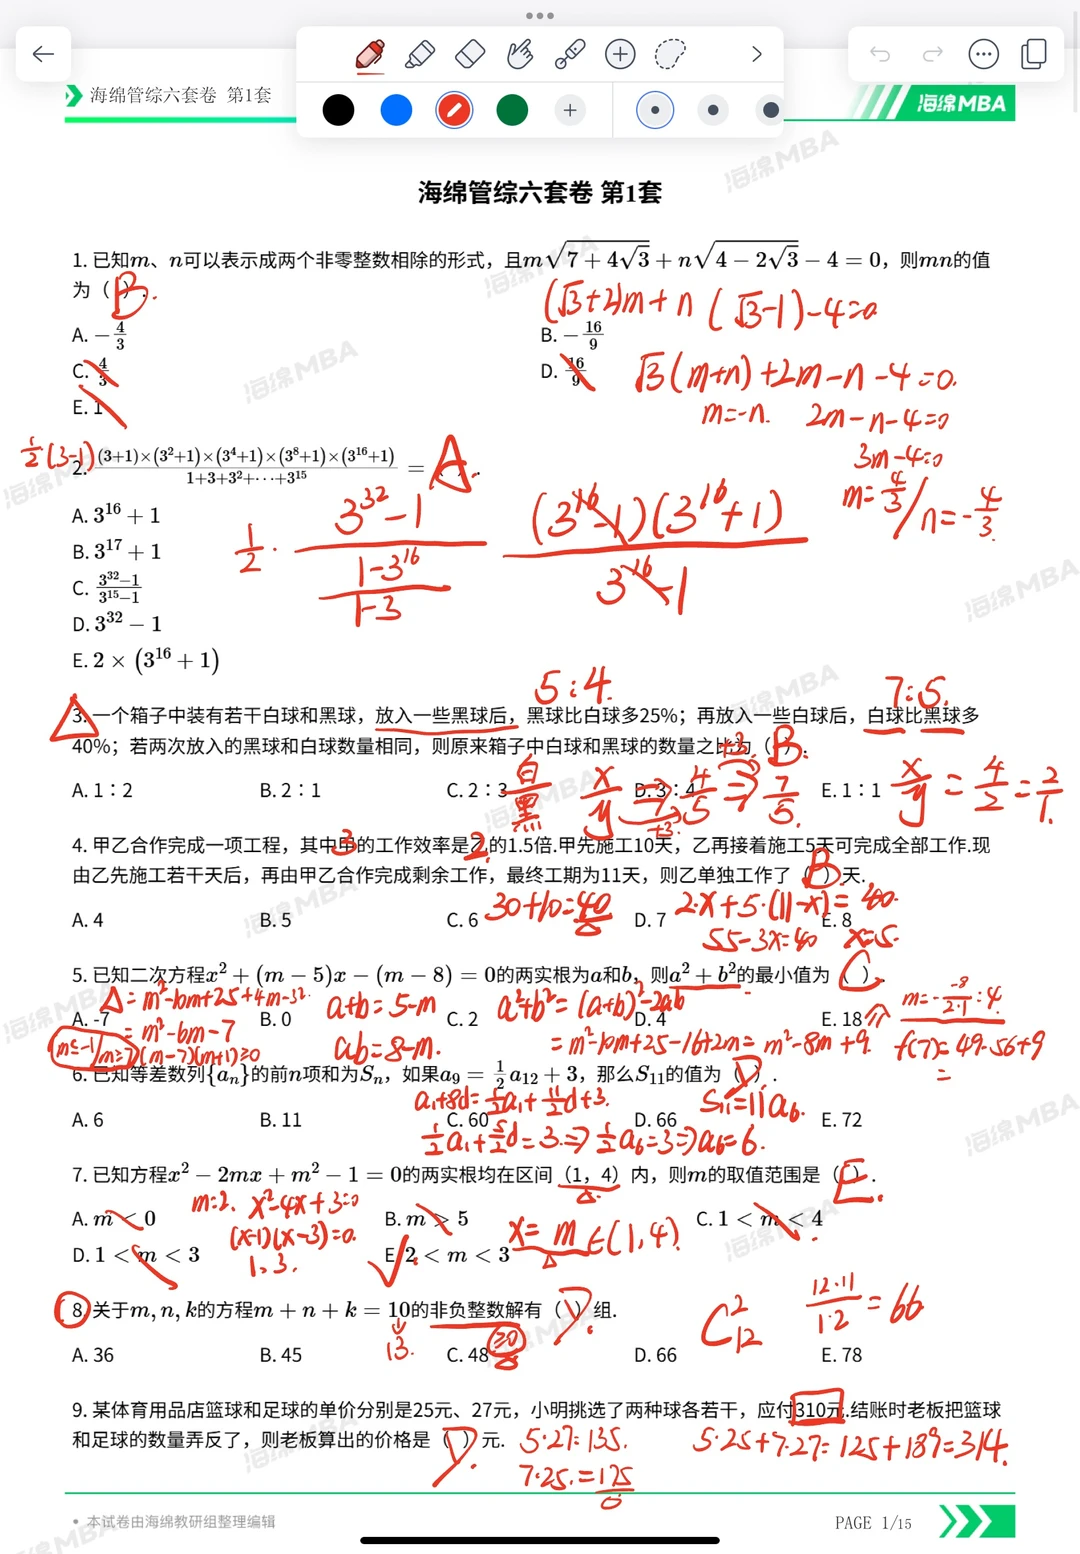 海绵管综六套卷 第1套
海绵MBA
海绵管综六套卷 第1套
1. 已知m、n可以表示成两个非零整数相除的形式，且m√(7+4√3)+n√(4−2√3)−4=0，则mn的值
为（B）.
(√3+2)m+n(√3-1)-4=0
A. −4/3
B. −16/9
C. 4/3
D. 16/9
√3(m+n)+2m-n-4=0.
E. 1
m=-n. 2m-n-4=0
3m-4=0
m=4/3 / n=-4/3
1/2(3-1)
2. (3+1)×(3²+1)×(3⁴+1)×(3⁸+1)×(3¹⁶+1) / 1+3+3²+⋯+3¹⁵ =（A）.
A. 3¹⁶+1
1/2 · (3³²-1) / ((1-3¹⁶)/(1-3)) (3¹⁶-1)(3¹⁶+1) / 3¹⁶-1
B. 3¹⁷+1
C. (3³²−1)/(3¹⁵−1)
D. 3³²−1
E. 2×(3¹⁶+1)
5:4. 7:5.
3. 一个箱子中装有若干白球和黑球，放入一些黑球后，黑球比白球多25%；再放入一些白球后，白球比黑球多
40%；若两次放入的黑球和白球数量相同，则原来箱子中白球和黑球的数量之比为（B）.
A. 1∶2 B. 2∶1 C. 2∶3 D. 3∶4 E. 1∶1
白/黑 x/y ⇒ 4/5 ⇒ 7/5. +3 +3. x/y = 4/2 = 2/1.
4. 甲乙合作完成一项工程，其中甲的工作效率是乙的1.5倍.甲先施工10天，乙再接着施工5天可完成全部工作.现
3 2.
由乙先施工若干天后，再由甲乙合作完成剩余工作，最终工期为11天，则乙单独工作了（B）天.
A. 4 B. 5 C. 6 D. 7 E. 8
30+10=40 2·x+5·(11-x)=40.
55-3x=40 x=5.
5. 已知二次方程x²+(m−5)x−(m−8)=0的两实根为a和b，则a²+b²的最小值为（C）.
A. -7 B. 0 C. 2 D. 4 E. 18
△=m²-10m+25+4m-32. a+b=5-m a²+b²=(a+b)²-2ab m=-(-8)/(2·1)=4.
=m²-6m-7 ab=8-m. =m²-10m+25-16+2m=m²-8m+9. f(7)=49-56+9
m≤-1/m≥7 (m-7)(m+1)≥0 =
6. 已知等差数列{aₙ}的前n项和为Sₙ，如果a₉=1/2a₁₂+3，那么S₁₁的值为（D）.
A. 6 B. 11 C. 60 D. 66 E. 72
a₁+8d=1/2a₁+11/2d+3. S₁₁=11a₆.
1/2a₁+5/2d=3.⇒1/2a₆=3⇒a₆=6.
7. 已知方程x²−2mx+m²−1=0的两实根均在区间（1，4）内，则m的取值范围是（E）.
m=2. x²-4x+3=0
A. m<0 B. m>5 C. 1<m<4
(x-1)(x-3)=0. x=m∈(1,4)
D. 1<m<3 E. 2<m<3
1、3.
8. 关于m,n,k的方程m+n+k=10的非负整数解有（D）组.
13. ≥0 C²₁₂ 12·11/1·2=66
A. 36 B. 45 C. 48 D. 66 E. 78
9. 某体育用品店篮球和足球的单价分别是25元、27元，小明挑选了两种球各若干，应付310元.结账时老板把篮球
和足球的数量弄反了，则老板算出的价格是（D）元.
5·27=135. 5·25+7·27=125+189=314.
7·25.=175
• 本试卷由海绵教研组整理编辑
PAGE 1/15